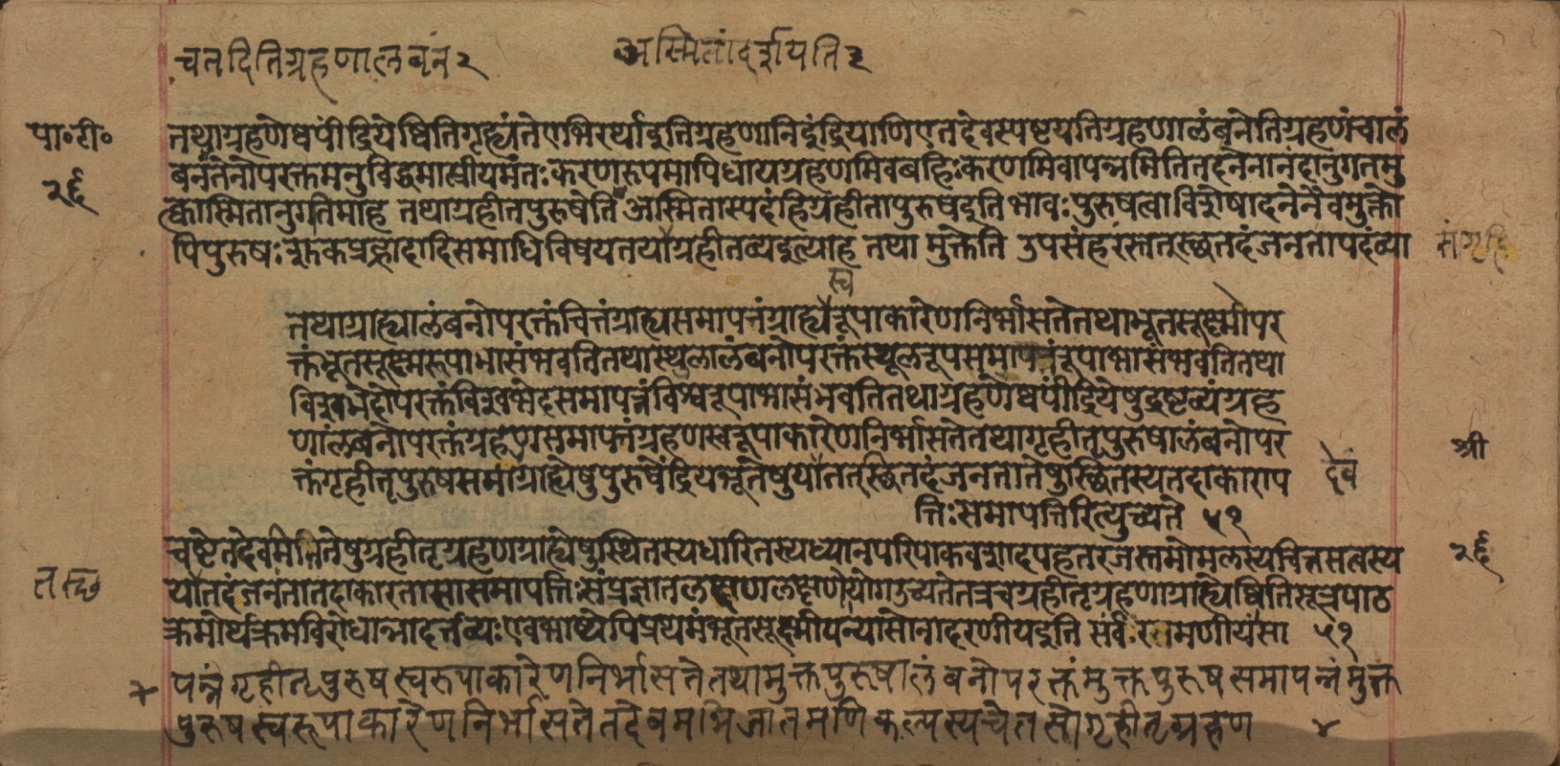 चतदितिग्रहणालवनं२ अस्मितांदर्शयति२
पा॰टी॰ तथाग्रहणेष्वपींद्रियेष्वितिगृह्यंतेएभिरर्थाइतिग्रहणानिइंद्रियाणिएतदेवस्पष्टयतिग्रहणालंबनेतिग्रहणंचालं
२६ बनंतेनोपरक्तमनुविद्धमात्मीयमंतःकरणरूपमापिधायग्रहणमिवबहिःकरणमिवापन्नमितितदनेनानंदानुगतमु
त्कास्मितानुगतिमाह तथाग्रहीतपुरुषेति अस्मितास्पदंहिग्रहीतापुरुषइतिभावःपुरुषत्वाविशेषादनेनैवमुक्तो
पिपुरुषःशुकप्रह्लादादिसमाधिविषयतयाग्रहीतव्यइत्याह तथा मुक्तेति उपसंहरंस्ततत्स्छतदंजनतापदंव्या
स्व
तथाग्राह्यालंबनोपरक्तंचित्तंग्राह्यसमापन्नंग्राह्यरूपाकारेणनिर्भासतेतथाभूतसूक्ष्मोपर
क्तंभूतसूक्ष्मरूपाभासंभवतितथास्थुलालंबनोपरक्तंस्थूलरूपसमापन्नंरूपाभासंभवतितथा
विश्वभेदोपरक्तंविश्वभेदसमापन्नंविश्वरूपाभासंभवतितथाग्रहणेष्वपींद्रियेषुद्रष्टव्यंग्रह
णांलबनोपरक्तंग्रहणसमापन्नंग्रहणस्वरूपाकारेणनिर्भासतेतथागृहीतृपुरुषालंबनोपर श्री
क्तंगृहीतृपुरुषसमाग्राह्येषुपुरुषेंद्रियभूतेषुयातत्स्छितदंजनतातेषुस्छितस्यतदाकाराप देवं
त्तिःसमापत्तिरित्युच्यते ५१
चष्टेतदेवमितितेषुग्रहीतृग्रहणग्राह्येषुस्थितस्यधारितस्यध्यानपरिपाकवशादपहतरजस्तमोमलस्यचित्तसत्वस्य २६
यातदंजनतातदाकारतासासमापत्तिःसंप्रज्ञातलक्षणलक्षणोयोगउच्यतेतत्रचग्रहीतृग्रहणग्राह्येष्वितिसूत्रपाठ
क्रमोर्थक्रमविरोधान्नादर्त्तव्यःएवंभाष्येपिप्रथमंभूतसूक्ष्मोपन्यासोनादरणीयइति सर्वंरमणीयंसा ५१
पन्नंगृहीतृपुरुषस्वरूपाकारेणनिर्भासतेतथामुक्तपुरुषालंबनोपरक्तंमुक्तपुरूषसमापन्नंमुक्त
पुरूषस्वरूपाकारेणनिर्भासतेतदेवमभिजातमणिकल्पस्यचेतसोगृहीतृग्रहण ४